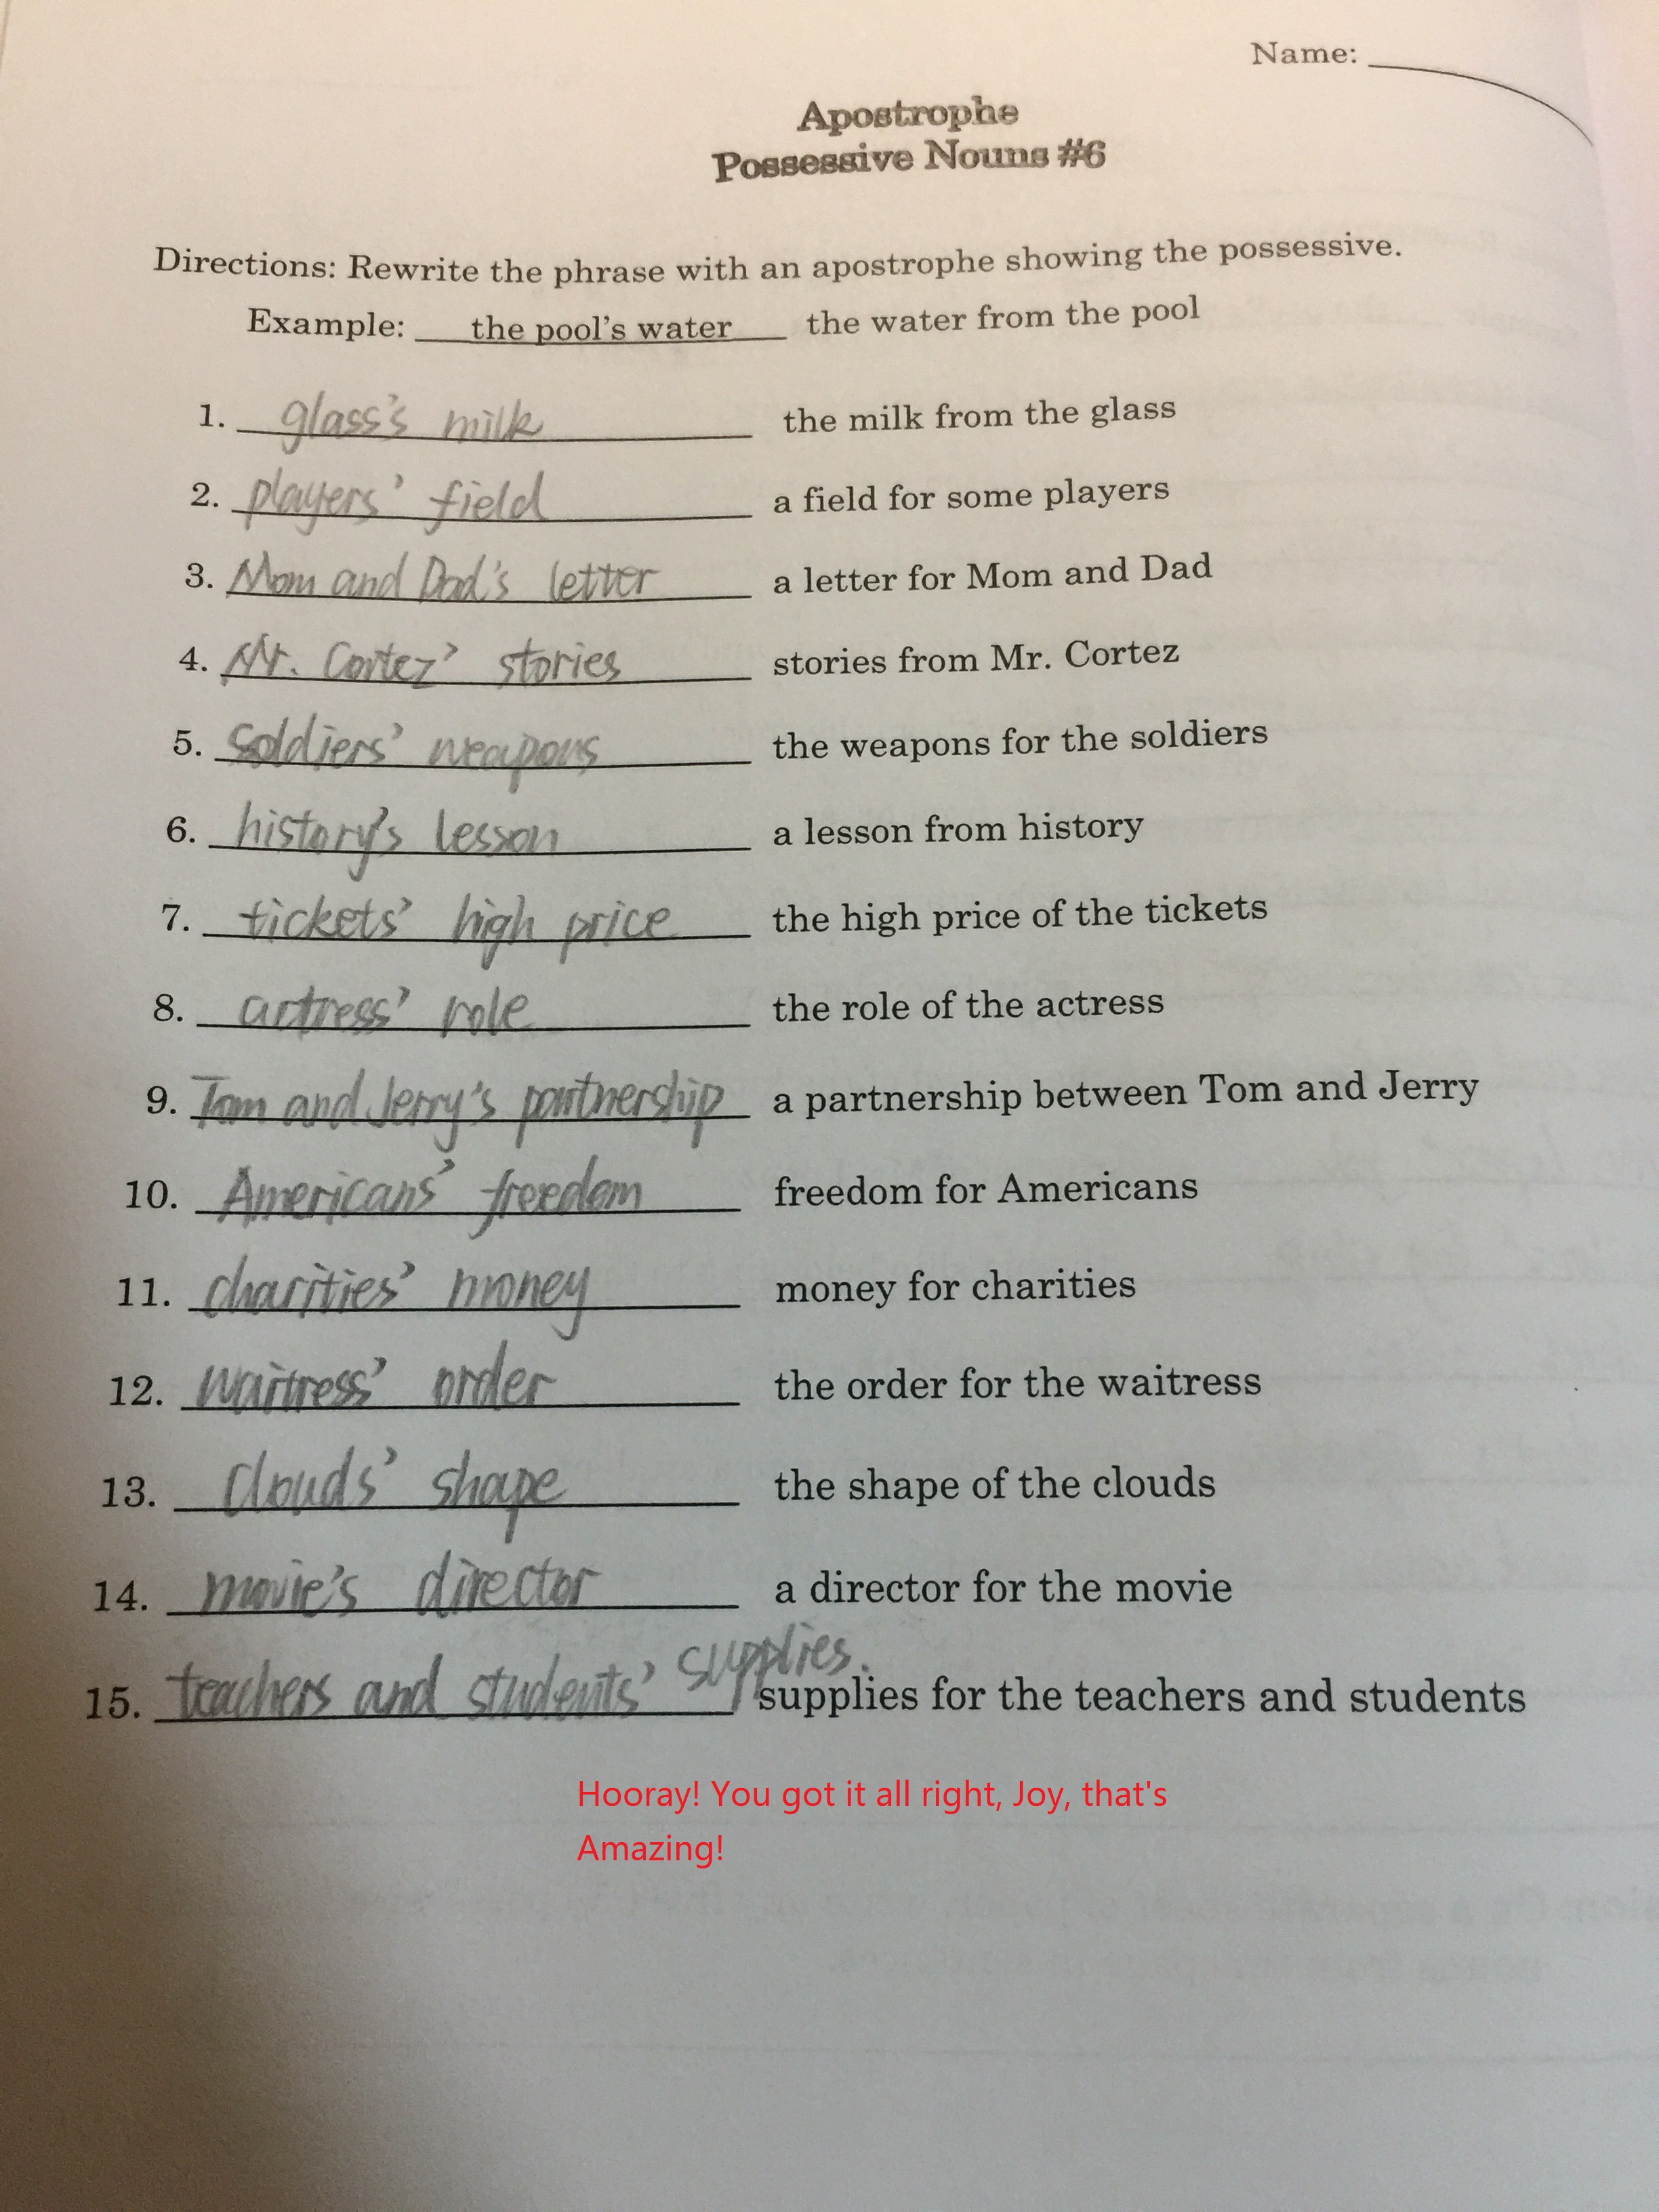 Name:
Apostrophe
Possessive Nouns #6
Directions: Rewrite the phrase with an apostrophe showing the possessive.
Example: the pool's water the water from the pool
1. glass's milk the milk from the glass
2. players' field a field for some players
3. Mom and Dad's letter a letter for Mom and Dad
4. Mr. Cortez' stories stories from Mr. Cortez
5. Soldiers' weapons the weapons for the soldiers
6. history's lesson a lesson from history
7. tickets' high price the high price of the tickets
8. actress' role the role of the actress
9. Tom and Jerry's partnership a partnership between Tom and Jerry
10. Americans' freedom freedom for Americans
11. charities' money money for charities
12. waitress' order the order for the waitress
13. clouds' shape the shape of the clouds
14. movie's director a director for the movie
15. teachers and students' supplies. supplies for the teachers and students
Hooray! You got it all right, Joy, that's
Amazing!